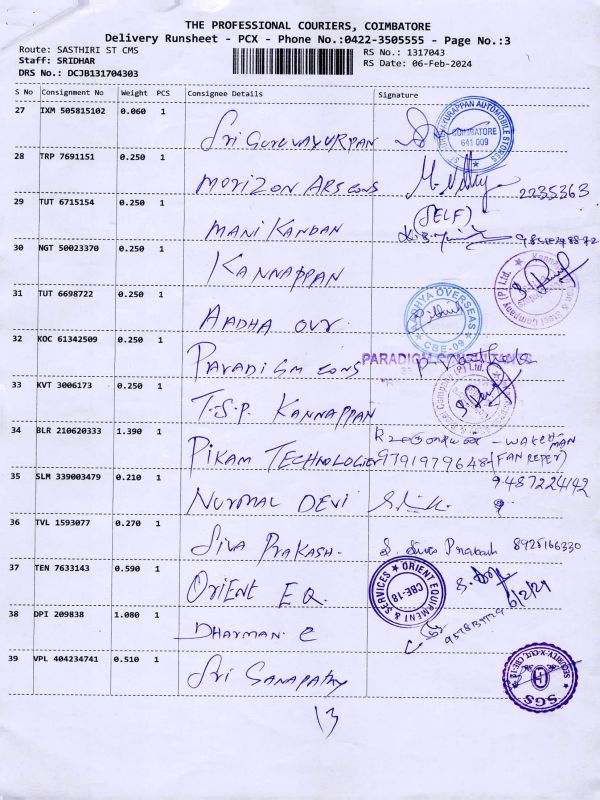 THE PROFESSIONAL COURIERS, COIMBATORE
Delivery Runsheet - PCX - Phone No.:0422-3505555 - Page No.:3
Route: SASTHIRI ST CMS
RS No.: 1317043
Staff: SRIDHAR
RS Date: 06-Feb-2024
DRS No.: DCJB131704303
S No Consignment No Weight PCS Consignee Details Signature
27 IXM 505815102 0.060 1
Sri Guruvayurpan
COIMBATORE
641 009
28 TRP 7691151 0.250 1
MORIZON ARS CONS
2235363
29 TUT 6715154 0.250 1
MANI KANDAN
(SELF)
30 NGT 50023370 0.250 1
KANNAPPAN
31 TUT 6698722 0.250 1
AADHA OVR.
OVERSEAS
CBE-09
32 KOC 61342509 0.250 1
PARADIGM CONS
PARADIGM
33 KVT 3006173 0.250 1
T.S.P. KANNAPPAN
34 BLR 210620333 1.390 1
PIKAM TECHNOLOGIES
- WATCHMAN
9791979648 (FAN REPER)
35 SLM 339003479 0.210 1
NURMAL DEVI
9487224142
36 TVL 1593077 0.270 1
SIVA PRAKASH.
S. Siva Prakash 8925166330
37 TEN 7633143 0.590 1
ORIENT EQ.
ORIENT EQUIPMENT & SERVICES
CBE-18
6/2/24
38 DPI 209838 1.080 1
DHARMAN. C
39 VPL 404234741 0.510 1
Sri Ganapathy
SGS
13